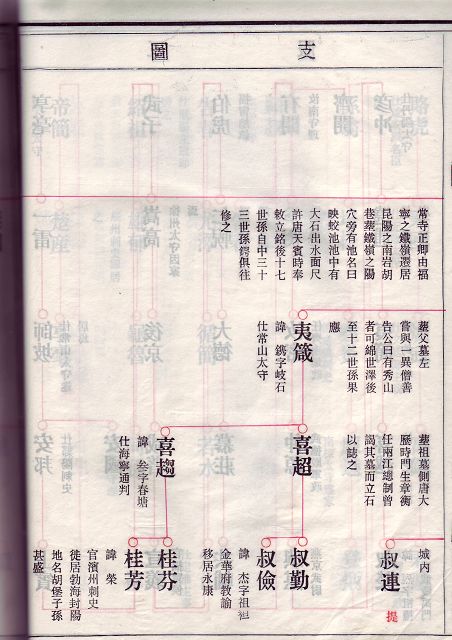 支圖
常寺正卿由福
寧之鐵嶺遷居
昆陽之南岩胡
巷葬鐵嶺之陽
穴旁有池名曰
映蛟池池中有
大石出水面尺
許唐天寶時奉
敕立銘後十七
世孫自中三十
三世孫鍔俱往
修之
葬父墓左
嘗與一異僧善
告公曰有秀山
者可綿世澤後
至十二世孫果
應
夷箴
諱 鐫字岐石
仕常山太守
葬祖墓側唐大
曆時門生章衡
任兩江總制曾
謁其墓而立石
以誌之
喜超
喜趨
諱 叁字春塘
仕海寧通判
城內
叔連
提
叔勤
叔儉
諱 杰字祖
金華府教諭
移居永康
桂芬
桂芳
諱 榮
官濱州刺史
徙居勃海封陽
地名胡堡子孫
甚盛